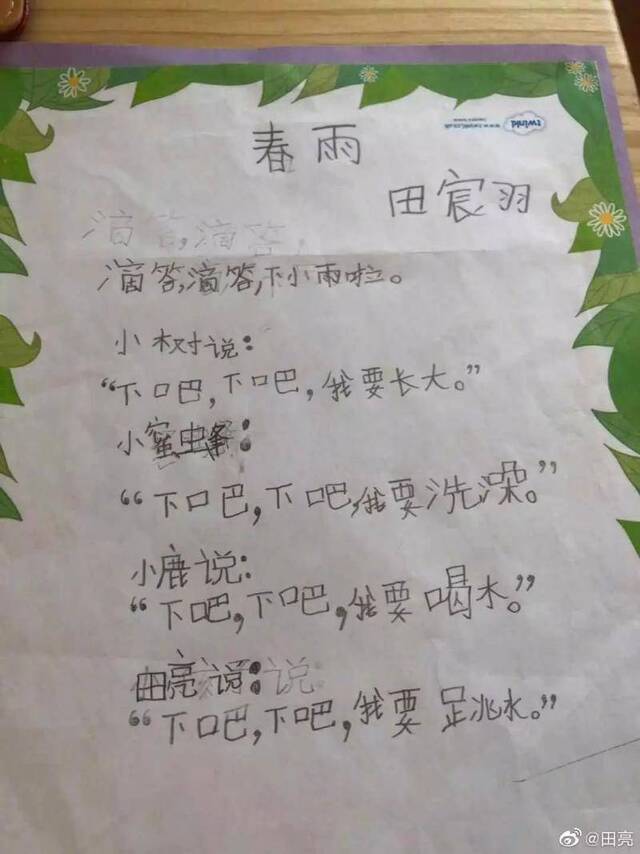 twinkl
www.twinkl.co.uk
春雨
田宸羽
滴答,滴答,
滴答,滴答,下小雨啦。
小树说:
“下吧,下吧,我要长大。”
小蜜虫:
“下吧,下吧,我要洗澡。”
小鹿说:
“下吧,下吧,我要喝水。”
田亮说:说
“下吧,下吧,我要跳水。”
@田亮